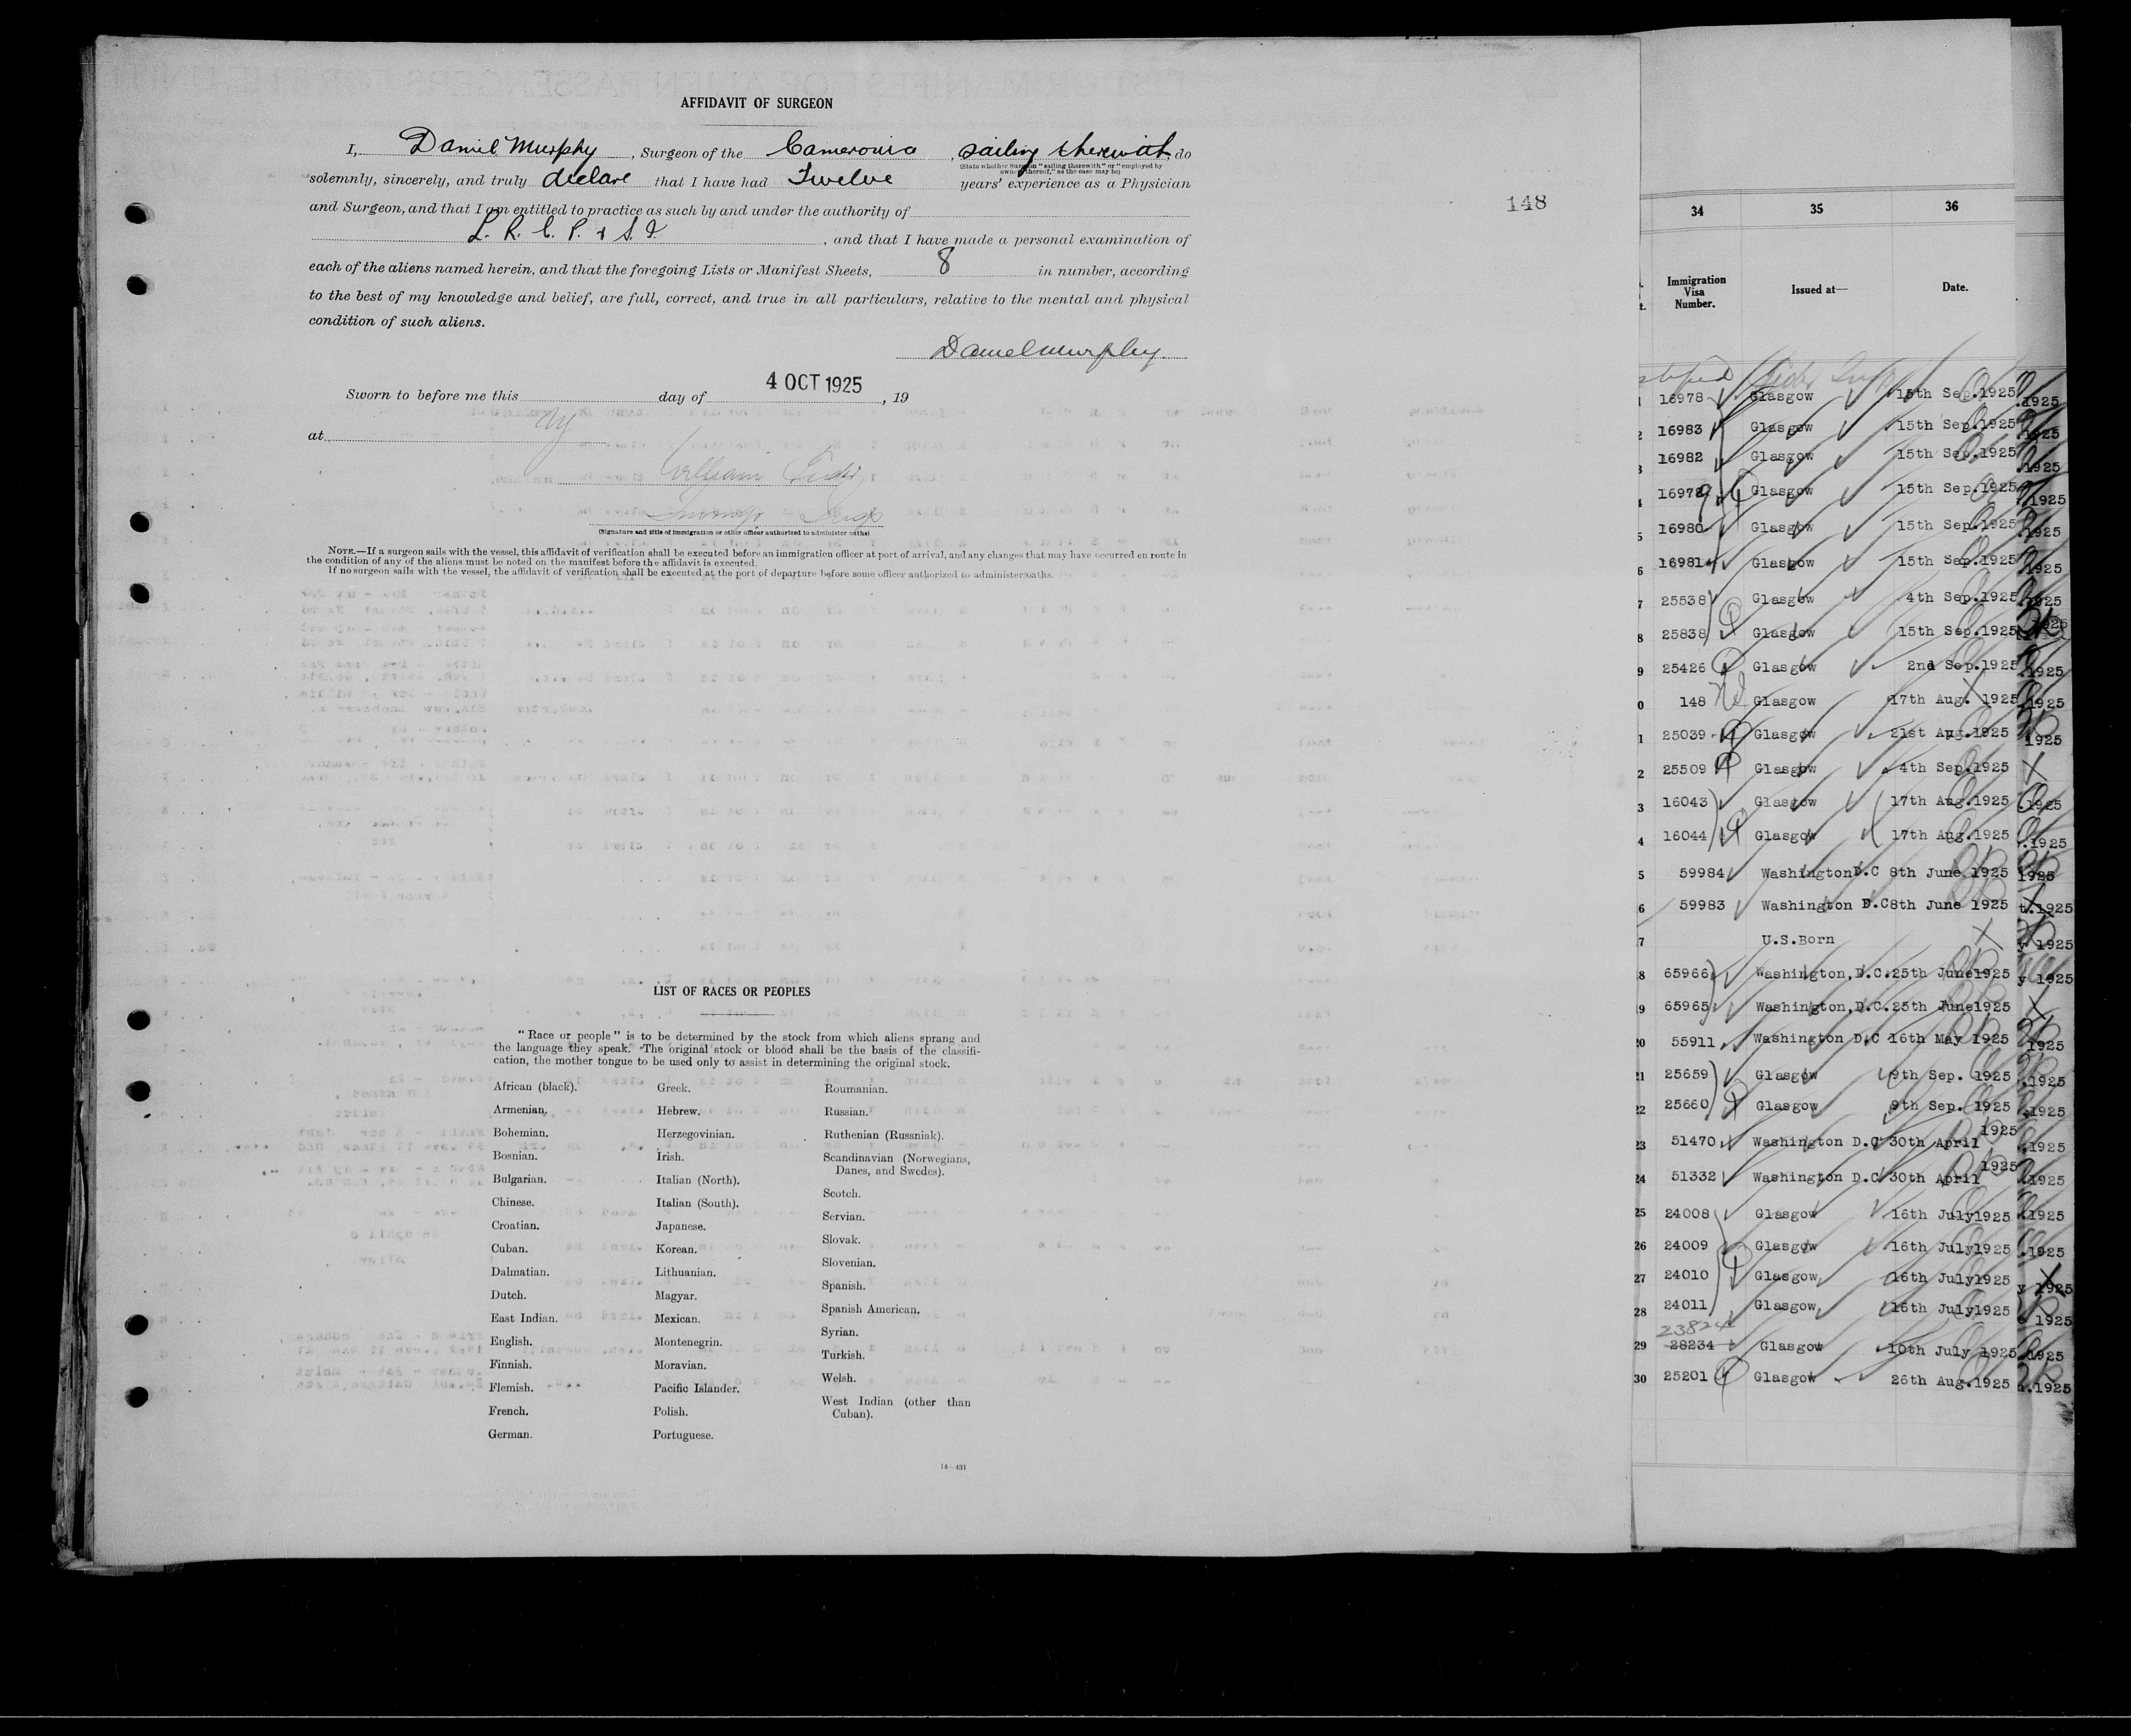 AFFIDAVIT OF SURGEON
I, Daniel Murphy, Surgeon of the Cameronia, sailing therewith, do
(State whether Surgeon "sailing therewith" or "employed by
owners thereof," as the case may be)
solemnly, sincerely, and truly declare that I have had Twelve years' experience as a Physician
148
and Surgeon, and that I am entitled to practice as such by and under the authority of
L. R. C. P. & S. I. , and that I have made a personal examination of
each of the aliens named herein, and that the foregoing Lists or Manifest Sheets, 8 in number, according
to the best of my knowledge and belief, are full, correct, and true in all particulars, relative to the mental and physical
condition of such aliens.
Daniel Murphy
Sworn to before me this day of 4 OCT 1925, 19
at NY
William
(Signature and title of immigration or other officer authorized to administer oaths)
NOTE.—If a surgeon sails with the vessel, this affidavit of verification shall be executed before an immigration officer at port of arrival, and any changes that may have occurred en route in
the condition of any of the aliens must be noted on the manifest before the affidavit is executed.
If no surgeon sails with the vessel, the affidavit of verification shall be executed at the port of departure before some officer authorized to administer oaths.
LIST OF RACES OR PEOPLES
"Race or people" is to be determined by the stock from which aliens sprang and
the language they speak. The original stock or blood shall be the basis of the classifi-
cation, the mother tongue to be used only to assist in determining the original stock.
African (black).
Armenian.
Bohemian.
Bosnian.
Bulgarian.
Chinese.
Croatian.
Cuban.
Dalmatian.
Dutch.
East Indian.
English.
Finnish.
Flemish.
French.
German.
Greek.
Hebrew.
Herzegovinian.
Irish.
Italian (North).
Italian (South).
Japanese.
Korean.
Lithuanian.
Magyar.
Mexican.
Montenegrin.
Moravian.
Pacific Islander.
Polish.
Portuguese.
Roumanian.
Russian.
Ruthenian (Russniak).
Scandinavian (Norwegians,
Danes, and Swedes).
Scotch.
Servian.
Slovak.
Slovenian.
Spanish.
Spanish American.
Syrian.
Turkish.
Welsh.
West Indian (other than
Cuban).
14—431
34 35 36
Immigration
Visa
Number.
Issued at—
Date.
16978 Glasgow 15th Sep.1925
16983 Glasgow 15th Sep.1925
16982 Glasgow 15th Sep.1925
16979 Glasgow 15th Sep.1925
16980 Glasgow 15th Sep.1925
16981 Glasgow 15th Sep.1925
7 25538 Glasgow 4th Sep.1925
8 25838 Glasgow 15th Sep.1925
9 25426 Glasgow 2nd Sep.1925
0 148 Glasgow 17th Aug. 1925
1 25039 Glasgow 21st Aug.1925
2 25509 Glasgow 4th Sep.1925
3 16043 Glasgow 17th Aug.1925
4 16044 Glasgow 17th Aug.1925
5 59984 Washington D.C 8th June 1925
6 59983 Washington D.C 8th June 1925
7 U.S.Born
8 65966 Washington, D.C. 25th June 1925
9 65965 Washington, D.C. 25th June 1925
20 55911 Washington D.C 16th May 1925
21 25659 Glasgow 9th Sep. 1925
22 25660 Glasgow 9th Sep. 1925
23 51470 Washington D.C 30th April 1925
24 51332 Washington D.C 30th April 1925
25 24008 Glasgow 16th July 1925
26 24009 Glasgow 16th July 1925
27 24010 Glasgow 16th July 1925
28 24011 Glasgow 16th July 1925
23824
29 28234 Glasgow 10th July 1925
30 25201 Glasgow 26th Aug.1925